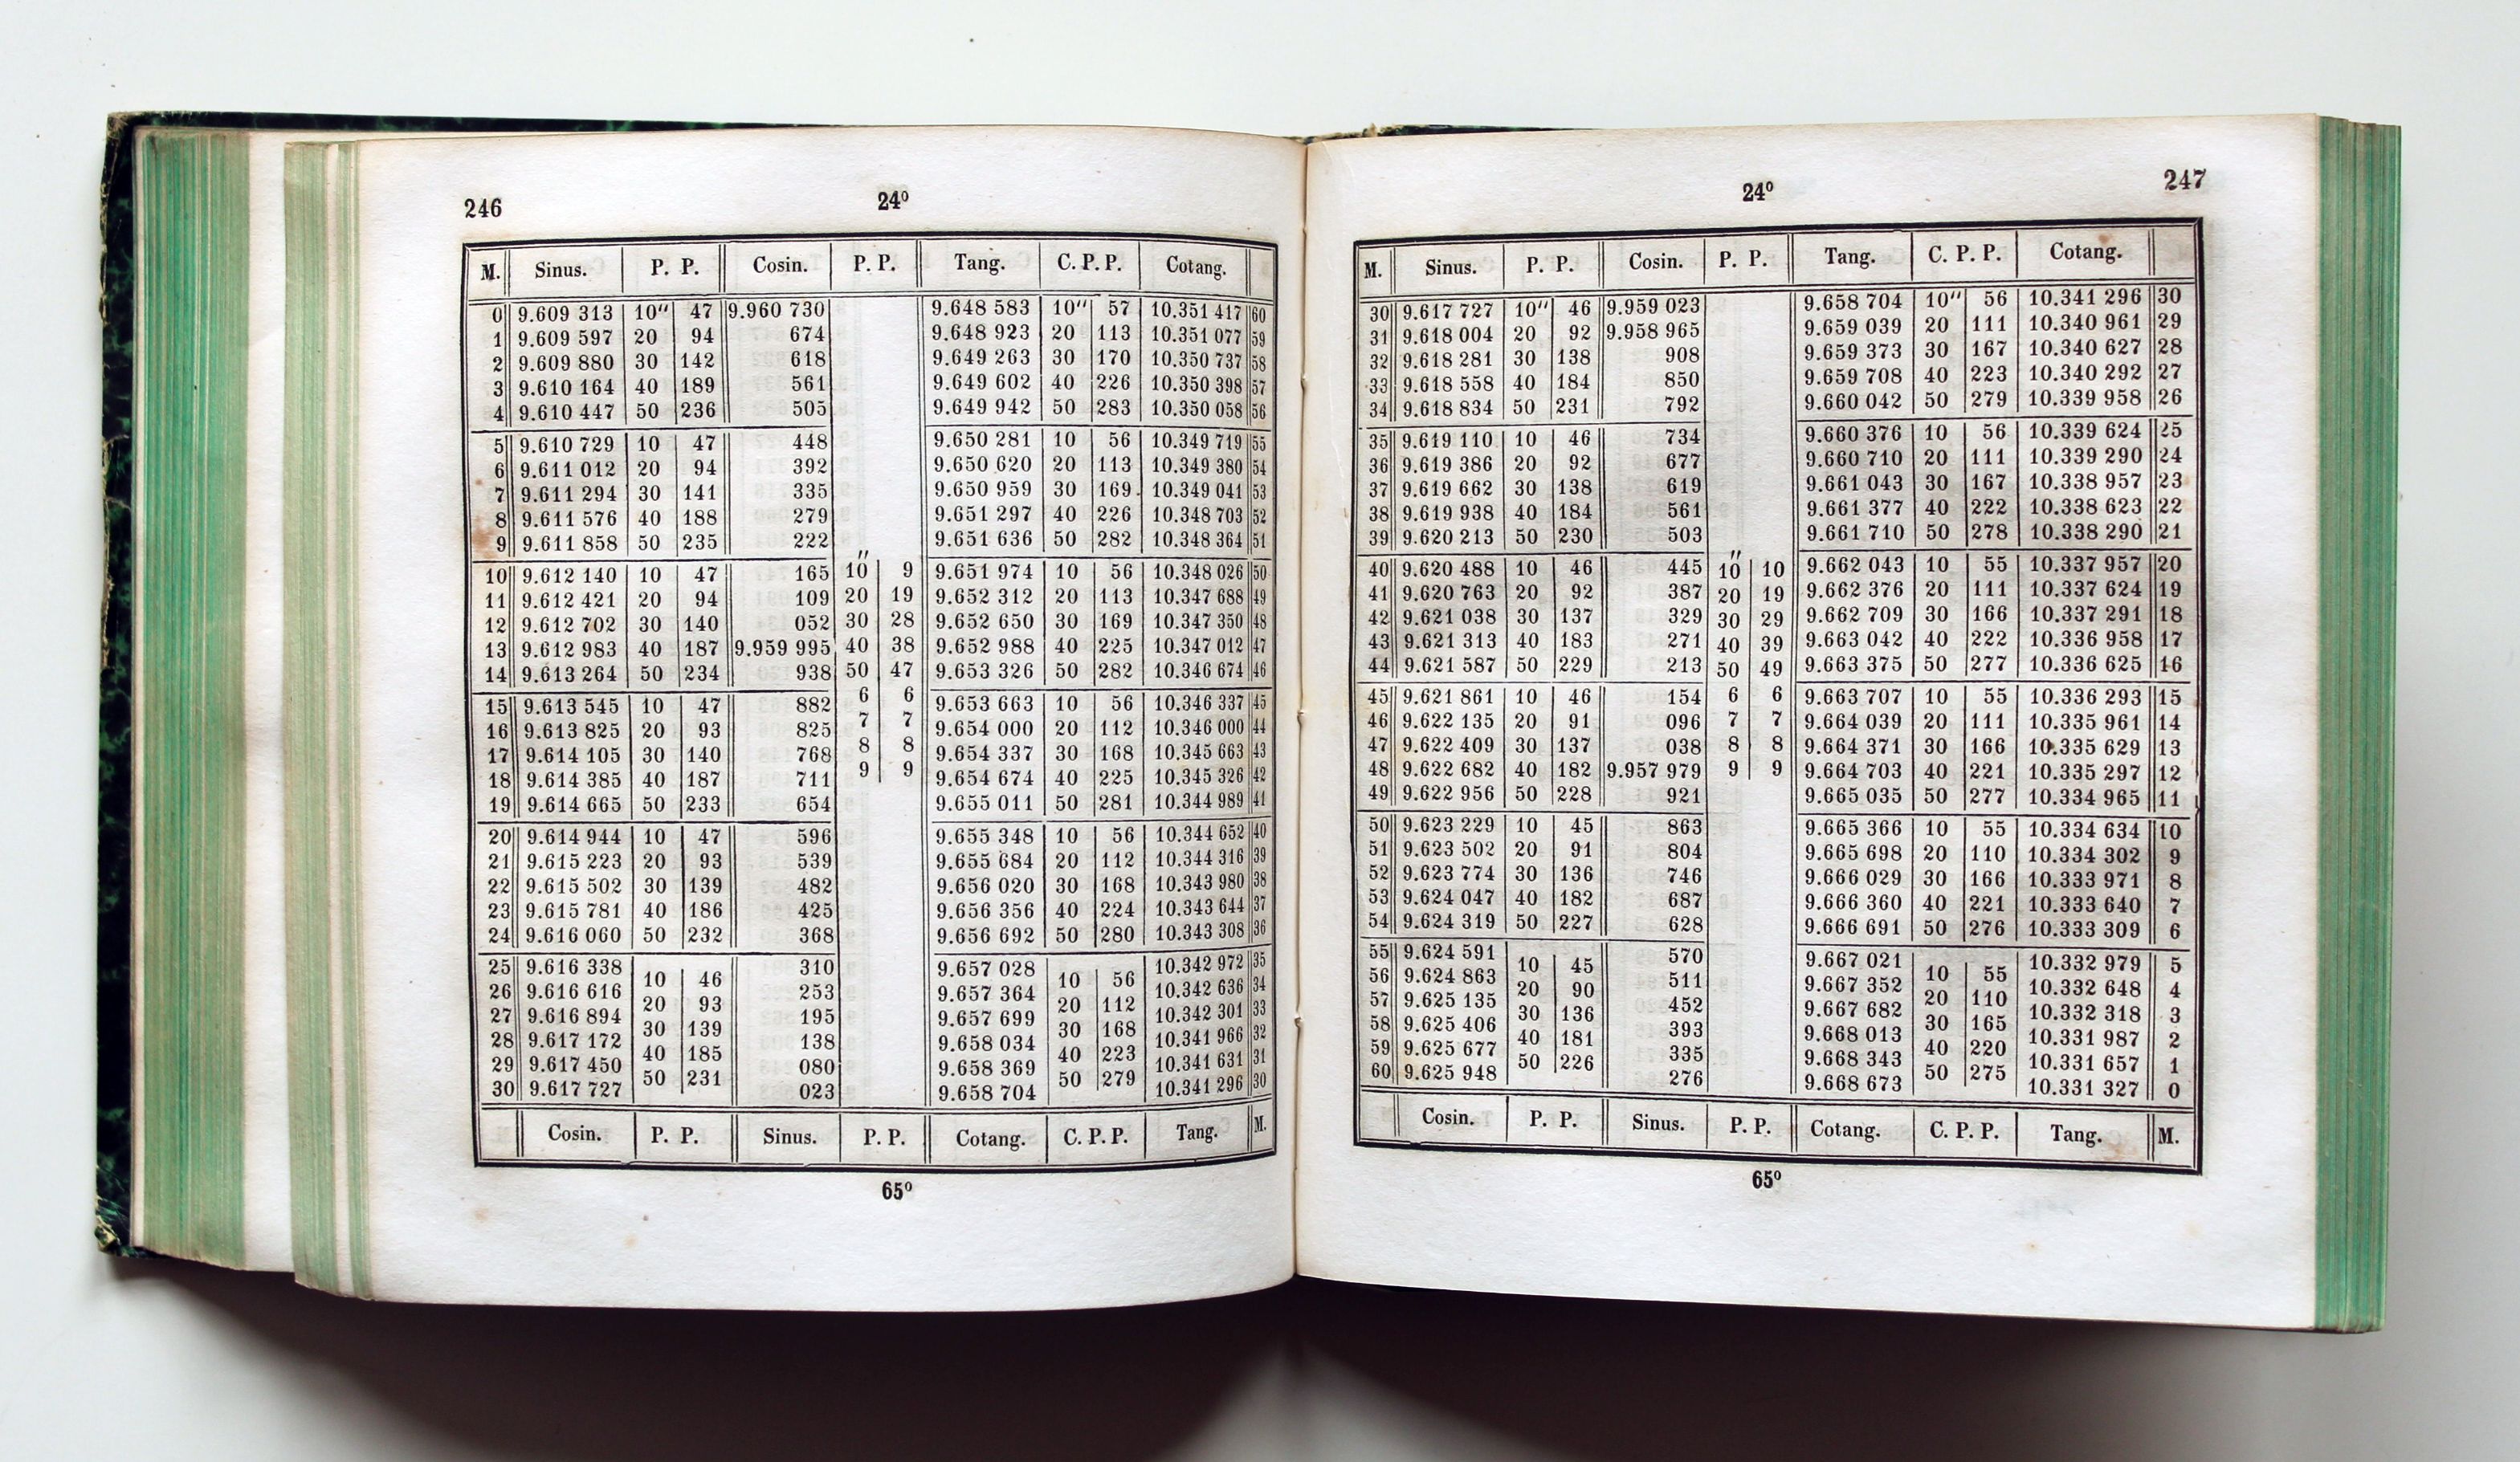 246 24⁰
M. Sinus. P. P. Cosin. P. P. Tang. C. P. P. Cotang.
0 9.609 313 10″ 47 9.960 730 9.648 583 10″ 57 10.351 417 60
1 9.609 597 20 94 674 9.648 923 20 113 10.351 077 59
2 9.609 880 30 142 618 9.649 263 30 170 10.350 737 58
3 9.610 164 40 189 561 9.649 602 40 226 10.350 398 57
4 9.610 447 50 236 505 9.649 942 50 283 10.350 058 56
5 9.610 729 10 47 448 9.650 281 10 56 10.349 719 55
6 9.611 012 20 94 392 9.650 620 20 113 10.349 380 54
7 9.611 294 30 141 335 9.650 959 30 169 10.349 041 53
8 9.611 576 40 188 279 9.651 297 40 226 10.348 703 52
9 9.611 858 50 235 222 9.651 636 50 282 10.348 364 51
10 9.612 140 10 47 165 10″ 9 9.651 974 10 56 10.348 026 50
11 9.612 421 20 94 109 20 19 9.652 312 20 113 10.347 688 49
12 9.612 702 30 140 052 30 28 9.652 650 30 169 10.347 350 48
13 9.612 983 40 187 9.959 995 40 38 9.652 988 40 225 10.347 012 47
14 9.613 264 50 234 938 50 47 9.653 326 50 282 10.346 674 46
15 9.613 545 10 47 882 6 6 9.653 663 10 56 10.346 337 45
16 9.613 825 20 93 825 7 7 9.654 000 20 112 10.346 000 44
17 9.614 105 30 140 768 8 8 9.654 337 30 168 10.345 663 43
18 9.614 385 40 187 711 9 9 9.654 674 40 225 10.345 326 42
19 9.614 665 50 233 654 9.655 011 50 281 10.344 989 41
20 9.614 944 10 47 596 9.655 348 10 56 10.344 652 40
21 9.615 223 20 93 539 9.655 684 20 112 10.344 316 39
22 9.615 502 30 139 482 9.656 020 30 168 10.343 980 38
23 9.615 781 40 186 425 9.656 356 40 224 10.343 644 37
24 9.616 060 50 232 368 9.656 692 50 280 10.343 308 36
25 9.616 338 310 9.657 028 10.342 972 35
26 9.616 616 10 46 253 9.657 364 10 56 10.342 636 34
27 9.616 894 20 93 195 9.657 699 20 112 10.342 301 33
28 9.617 172 30 139 138 9.658 034 30 168 10.341 966 32
29 9.617 450 40 185 080 9.658 369 40 223 10.341 631 31
30 9.617 727 50 231 023 9.658 704 50 279 10.341 296 30
Cosin. P. P. Sinus. P. P. Cotang. C. P. P. Tang. M.
65⁰
24⁰ 247
M. Sinus. P. P. Cosin. P. P. Tang. C. P. P. Cotang.
30 9.617 727 10″ 46 9.959 023 9.658 704 10″ 56 10.341 296 30
31 9.618 004 20 92 9.958 965 9.659 039 20 111 10.340 961 29
32 9.618 281 30 138 908 9.659 373 30 167 10.340 627 28
33 9.618 558 40 184 850 9.659 708 40 223 10.340 292 27
34 9.618 834 50 231 792 9.660 042 50 279 10.339 958 26
35 9.619 110 10 46 734 9.660 376 10 56 10.339 624 25
36 9.619 386 20 92 677 9.660 710 20 111 10.339 290 24
37 9.619 662 30 138 619 9.661 043 30 167 10.338 957 23
38 9.619 938 40 184 561 9.661 377 40 222 10.338 623 22
39 9.620 213 50 230 503 9.661 710 50 278 10.338 290 21
40 9.620 488 10 46 445 10″ 10 9.662 043 10 55 10.337 957 20
41 9.620 763 20 92 387 20 19 9.662 376 20 111 10.337 624 19
42 9.621 038 30 137 329 30 29 9.662 709 30 166 10.337 291 18
43 9.621 313 40 183 271 40 39 9.663 042 40 222 10.336 958 17
44 9.621 587 50 229 213 50 49 9.663 375 50 277 10.336 625 16
45 9.621 861 10 46 154 6 6 9.663 707 10 55 10.336 293 15
46 9.622 135 20 91 096 7 7 9.664 039 20 111 10.335 961 14
47 9.622 409 30 137 038 8 8 9.664 371 30 166 10.335 629 13
48 9.622 682 40 182 9.957 979 9 9 9.664 703 40 221 10.335 297 12
49 9.622 956 50 228 921 9.665 035 50 277 10.334 965 11
50 9.623 229 10 45 863 9.665 366 10 55 10.334 634 10
51 9.623 502 20 91 804 9.665 698 20 110 10.334 302 9
52 9.623 774 30 136 746 9.666 029 30 166 10.333 971 8
53 9.624 047 40 182 687 9.666 360 40 221 10.333 640 7
54 9.624 319 50 227 628 9.666 691 50 276 10.333 309 6
55 9.624 591 570 9.667 021 10.332 979 5
56 9.624 863 10 45 511 9.667 352 10 55 10.332 648 4
57 9.625 135 20 90 452 9.667 682 20 110 10.332 318 3
58 9.625 406 30 136 393 9.668 013 30 165 10.331 987 2
59 9.625 677 40 181 335 9.668 343 40 220 10.331 657 1
60 9.625 948 50 226 276 9.668 673 50 275 10.331 327 0
Cosin. P. P. Sinus. P. P. Cotang. C. P. P. Tang. M.
65⁰